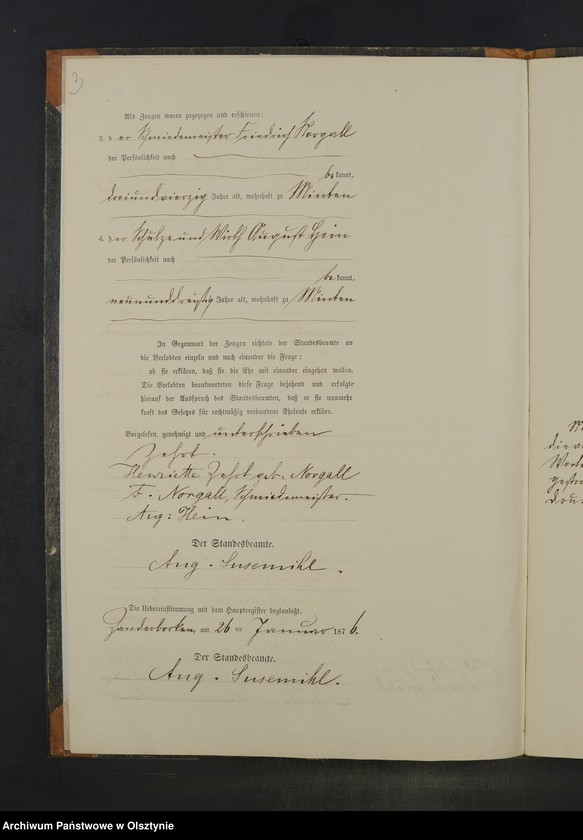 3
Als Zeugen waren zugezogen und erschienen:
3. der Schmiedemeister Friedrich Norgall
der Persönlichkeit nach
bekannt,
dreiundvierzig Jahre alt, wohnhaft zu Minten
4. der Schulze und Wirth August Hein
der Persönlichkeit nach
bekannt,
neununddreißig Jahre alt, wohnhaft zu Minten
In Gegenwart der Zeugen richtete der Standesbeamte an
die Verlobten einzeln und nach einander die Frage:
ob sie erklären, daß sie die Ehe mit einander eingehen wollen.
Die Verlobten beantworteten diese Frage bejahend und erfolgte
hierauf der Ausspruch des Standesbeamten, daß er sie nunmehr
kraft des Gesetzes für rechtmäßig verbundene Eheleute erkläre.
Vorgelesen, genehmigt und unterschrieben
Zehrt.
Henriette Zehrt geb. Norgall
F. Norgall, Schmiedemeister.
Aug: Hein.
Der Standesbeamte.
Aug. Susemihl.
Die Uebereinstimmung mit dem Hauptregister beglaubigt.
am 26ten Januar 1876.
Der Standesbeamte.
Aug. Susemihl.
Archiwum Państwowe w Olsztynie